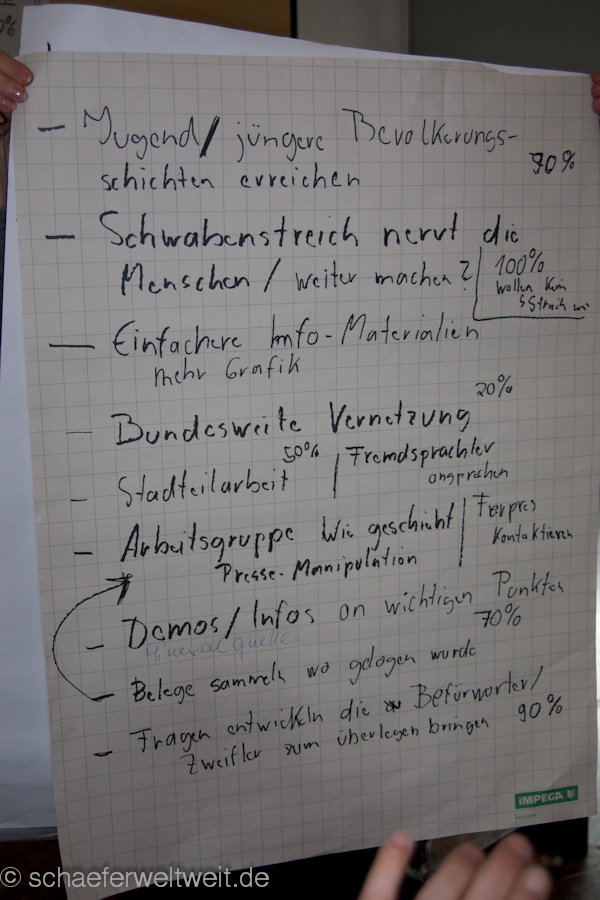 0%
– Jugend/ jüngere Bevölkerungs-
schichten erreichen 70%
– Schwabenstreich nervt die
Menschen/ weiter machen?
100%
wollen kein
– Einfachere Info-Materialien
mehr Grafik
– Bundesweite Vernetzung 20%
– Stadteilarbeit 50% Fremdsprachler
ansprechen
– Arbeitsgruppe Wie geschieht
Presse-Manipulation
Kontaktieren
– Demos/Infos an wichtigen Punkten
Mineralquellen 70%
– Belege sammeln wo gelogen wurde
– Fragen entwickeln die Befürworter/
Zweifler zum überlegen bringen 90%
IMPEGA
© schaeferweltweit.de